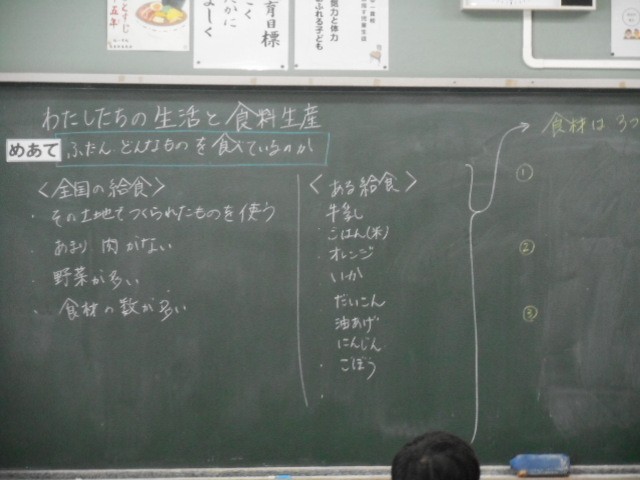 育目標
気力と体力
ふれる子ども
わたしたちの生活と食料生産
めあて ふだんどんなものを食べているのか
<全国の給食>
・その土地でつくられたものを使う
・あまり肉がない
・野菜が多い
・食材の数が多い
<ある給食>
・牛乳
・ごはん(米)
・オレンジ
・いか
だいこん
油あげ
・にんじん
・ごぼう
・
食材は3つ
①
②
③